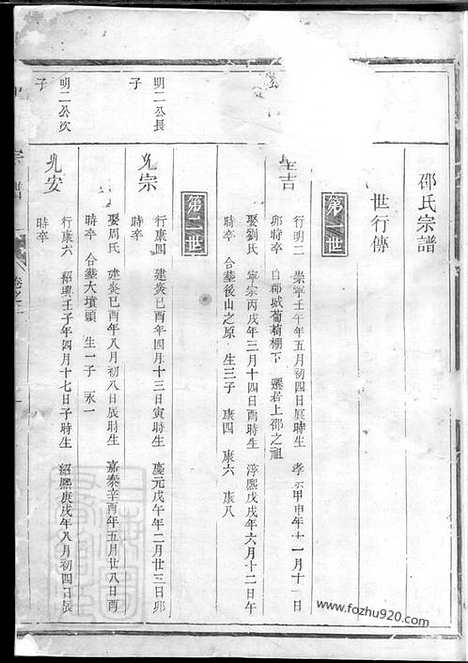 邵氏宗譜
世行傳
第一世
吉
行明二 崇寧壬午年五月初四日辰時生 孝 甲申年十一月十一日
卯時卒 白郡城葡萄棚下 遷若上邵之祖
娶劉氏 寧宗丙戌年三月十四日酉時生 淳熙戊戌年六月十二日午
時卒 合塟後山之原 生三子 康四 康六 康八
第二世
明二公長
子
宗
行康四 建炎己酉年四月十三日寅時生 慶元戊午年二月廿三日卯
時卒
娶周氏 建炎己酉年八月初八日辰時生 嘉泰辛酉年五月廿八日酉
時卒 合塟大墳頭 生一子 永一
明二公次
子
安
行康六 紹興壬子年四月十七日子時生 紹熙庚戌年八月初四日辰
時卒
宗譜
卷之二
www.fozhu920.com